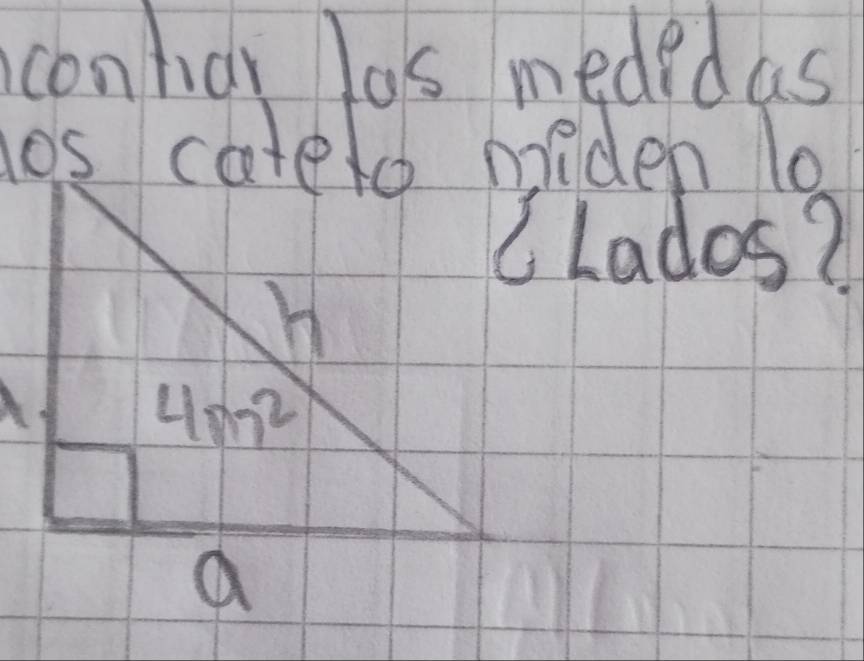 contrar las medidas
los cateto miden lo
¿Lados?
h
4m²
a